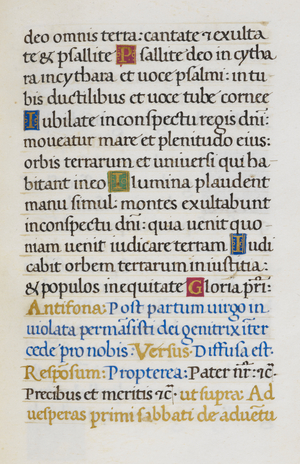 deo omnis terra: cantate ⁊ exulta
te & psallite Psallite deo in cytha
ra in cythara et uoce psalmi: in tu
bis ductilibus et uoce tube cornee
Iubilate in conspectu regis dñi:
moueatur mare et plenitudo eius:
orbis terrarum et uniuersi qui ha
bitant in eo Flumina plaudent
manu simul montes exultabunt
in conspectu dñi: quia uenit quo
niam uenit iudicare terram Iudi
cabit orbem terrarum in iustitia:
& populos in equitate Gloria pr̃i:
Antifona: Post partum uirgo in
uiolata permãsisti dei genitrix iter
cede pro nobis: Versus: Diffusa est.
Respõsum: Propterea: Pater nr̃: ⁊c̃.
Precibus et meritis ⁊c̃: ut supra: Ad
uesperas primi sabbati de aduẽtu